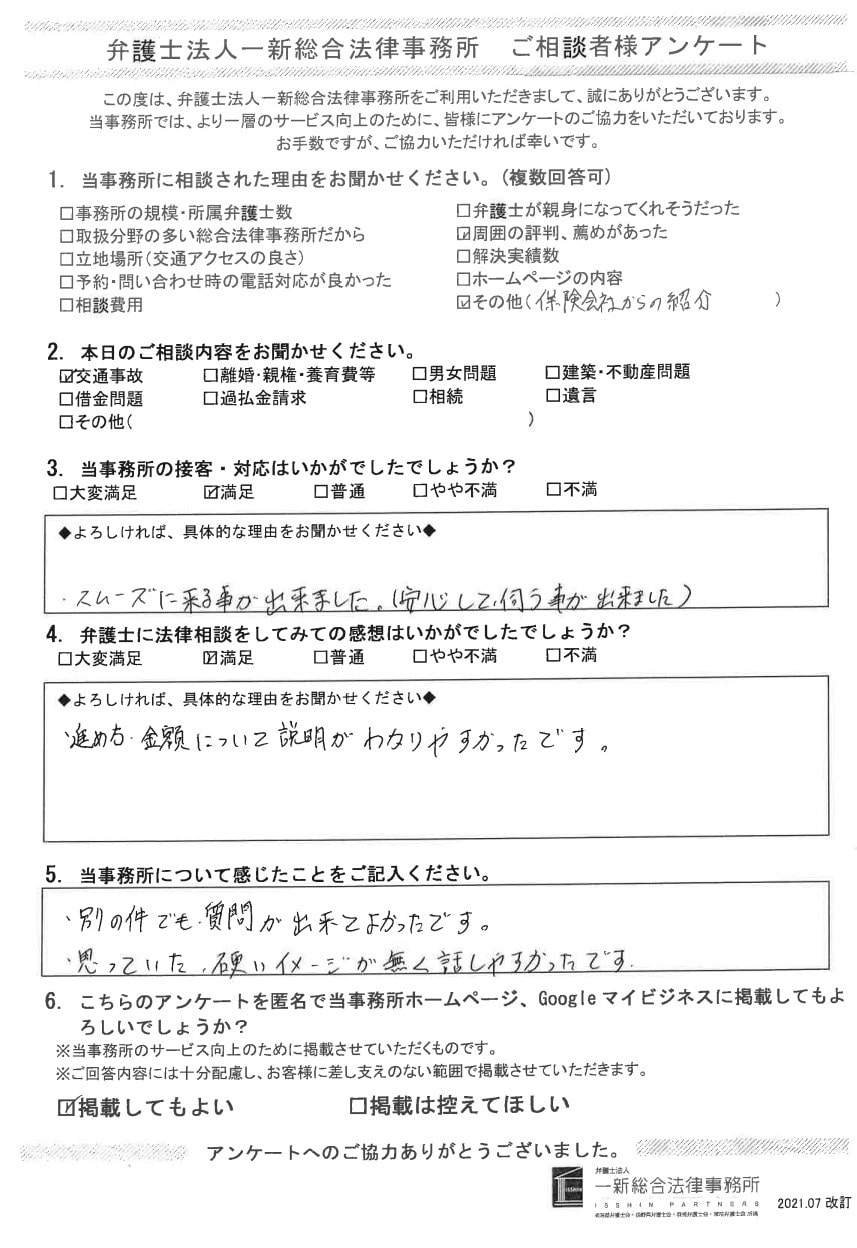 弁護士法人一新総合法律事務所　ご相談者様アンケート
この度は、弁護士法人一新総合法律事務所をご利用いただきまして、誠にありがとうございます。
当事務所では、より一層のサービス向上のために、皆様にアンケートのご協力をいただいております。
お手数ですが、ご協力いただければ幸いです。
1. 当事務所に相談された理由をお聞かせください。（複数回答可）
□事務所の規模・所属弁護士数　□弁護士が親身になってくれそうだった
□取扱分野の多い総合法律事務所だから　☑周囲の評判、薦めがあった
□立地場所（交通アクセスの良さ）　□解決実績数
□予約・問い合わせ時の電話対応が良かった　□ホームページの内容
□相談費用　☑その他（保険会社からの紹介　）
2. 本日のご相談内容をお聞かせください。
☑交通事故　□離婚・親権・養育費等　□男女問題　□建築・不動産問題
□借金問題　□過払金請求　□相続　□遺言
□その他（　）
3. 当事務所の接客・対応はいかがでしたでしょうか？
□大変満足　☑満足　□普通　□やや不満　□不満
◆よろしければ、具体的な理由をお聞かせください◆
・スムーズに来る事が出来ました。（安心して伺う事が出来ました）
4. 弁護士に法律相談をしてみての感想はいかがでしたでしょうか？
□大変満足　☑満足　□普通　□やや不満　□不満
◆よろしければ、具体的な理由をお聞かせください◆
・進め方・金額について説明がわかりやすかったです。
5. 当事務所について感じたことをご記入ください。
・別の件でも質問が出来てよかったです。
・思っていた、硬いイメージが無く話しやすかったです.
6. こちらのアンケートを匿名で当事務所ホームページ、Google マイビジネスに掲載してもよ
ろしいでしょうか？
※当事務所のサービス向上のために掲載させていただくものです。
※ご回答内容には十分配慮し、お客様に差し支えのない範囲で掲載させていただきます。
☑掲載してもよい　□掲載は控えてほしい
アンケートへのご協力ありがとうございました。
弁護士法人
一新総合法律事務所
ISSHIN PARTNERS
2021.07 改訂